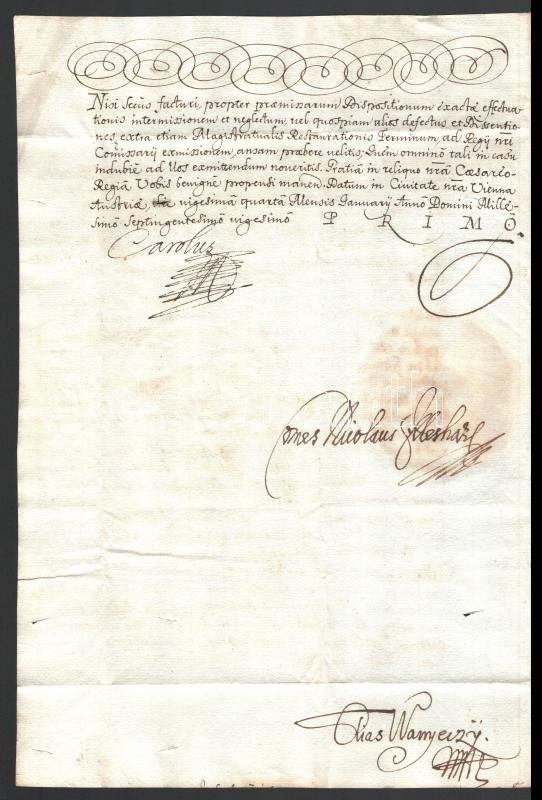 Nisi secus facturi, propter præmissarum Dispositionum exactæ effectua-
tionis intermissionem et neglectum, vel quospiam alios defectus et Dissentio-
nes, extra etiam Magistratualis Restaurationis Terminum, ad Regij nri
Comissarii exmissionem, ansam præbere velitis; Quem omnino tali in casu
indubie ad Vos exmittendum noveritis. Gratia in reliquo nra Cæsareo-
Regia Vobis benigne propensi manen. Datum in Civitate nra Vienna
Austriæ, die vigesima quarta Mensis Januarij Anno Domini Mille-
simo Septingentesimo vigesimo P R I M O.
Carolus
Comes Nicolaus Illeshazi
Elias Wanyeczÿ.